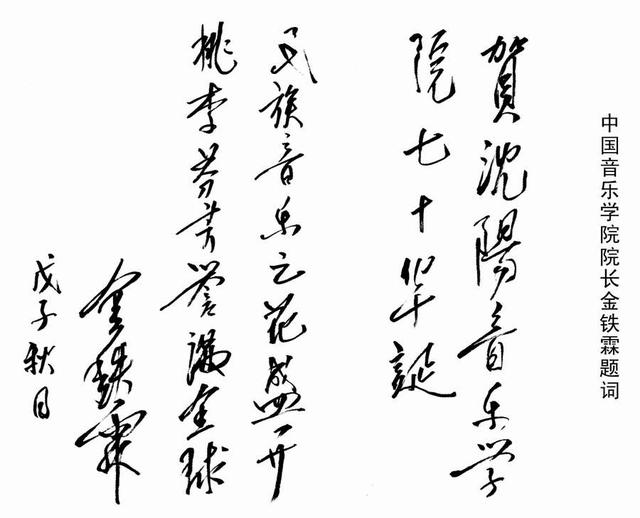 中国音乐学院院长金铁霖题词
賀沈陽音乐学
院七十华誕
民族音乐之花盛开
桃李芬芳誉满全球
金铁霖
戊子秋日